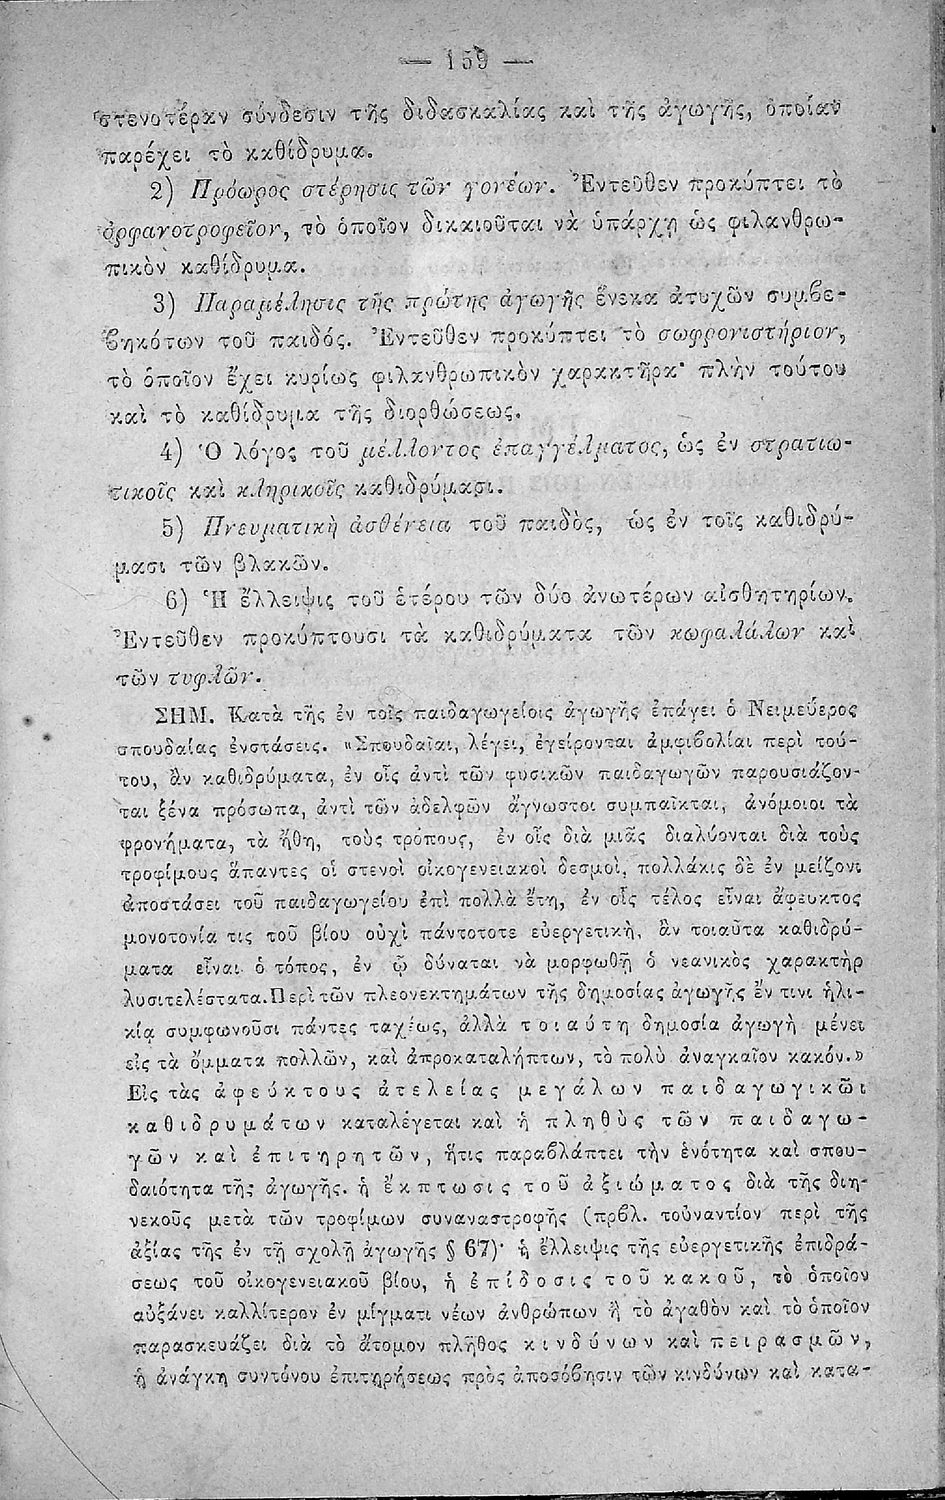 — 159 —
στενοτέραν σύνδεσιν τῆς διδασκαλίας καὶ τῆς ἀγωγῆς, ὁποίαν
παρέχει τὸ καθίδρυμα.
2) Πρόωρος στέρησις τῶν γονέων. Ἐντεῦθεν προκύπτει τὸ
ὀρφανοτροφεῖον, τὸ ὁποῖον δικαιοῦται νὰ ὑπάρχῃ ὡς φιλανθρω-
πικὸν καθίδρυμα.
3) Παραμέλησις τῆς πρώτης ἀγωγῆς ἕνεκα ἀτυχῶν συμβε-
βηκότων τοῦ παιδός. Ἐντεῦθεν προκύπτει τὸ σωφρονιστήριον,
τὸ ὁποῖον ἔχει κυρίως φιλανθρωπικὸν χαρακτῆρα· πλὴν τούτου
καὶ τὸ καθίδρυμα τῆς διορθώσεως.
4) Ὁ λόγος τοῦ μέλλοντος ἐπαγγέλματος, ὡς ἐν στρατιω-
τικοῖς καὶ κληρικοῖς καθιδρύμασι.
5) Πνευματικὴ ἀσθένεια τοῦ παιδὸς, ὡς ἐν τοῖς καθιδρύ-
μασι τῶν βλακῶν.
6) Ἡ ἔλλειψις τοῦ ἑτέρου τῶν δύο ἀνωτέρων αἰσθητηρίων.
Ἐντεῦθεν προκύπτουσι τὰ καθιδρύματα τῶν κωφαλάλων καὶ
τῶν τυφλῶν.
ΣΗΜ. Κατὰ τῆς ἐν τοῖς παιδαγωγείοις ἀγωγῆς ἐπάγει ὁ Νειμεϋερος
σπουδαίας ἐνστάσεις. «Σπουδαῖαι, λέγει, ἐγείρονται ἀμφιβολίαι περὶ τού-
του, ἂν καθιδρύματα, ἐν οἷς ἀντὶ τῶν φυσικῶν παιδαγωγῶν παρουσιάζον-
ται ξένα πρόσωπα, ἀντὶ τῶν ἀδελφῶν ἄγνωστοι συμπαῖκται, ἀνόμοιοι τὰ
φρονήματα, τὰ ἤθη, τοὺς τρόπους, ἐν οἷς διὰ μιᾶς διαλύονται διὰ τοὺς
τροφίμους ἅπαντες οἱ στενοὶ οἰκογενειακοὶ δεσμοὶ, πολλάκις δὲ ἐν μείζονι
ἀποστάσει τοῦ παιδαγωγείου ἐπὶ πολλὰ ἔτη, ἐν οἷς τέλος εἶναι ἄφευκτος
μονοτονία τις τοῦ βίου οὐχὶ πάντοτοτε εὐεργετικὴ, ἂν τοιαῦτα καθιδρύ-
ματα εἶναι ὁ τόπος, ἐν ᾧ δύναται νὰ μορφωθῇ ὁ νεανικὸς χαρακτὴρ
λυσιτελέστατα. Περὶ τῶν πλεονεκτημάτων τῆς δημοσίας ἀγωγῆς ἔν τινι ἡλι-
κίᾳ συμφωνοῦσι πάντες ταχέως, ἀλλὰ τοιαύτη δημοσία ἀγωγὴ μένει
εἰς τὰ ὄμματα πολλῶν, καὶ ἀπροκαταλήπτων, τὸ πολὺ ἀναγκαῖον κακόν.»
Εἰς τὰς ἀφεύκτους ἀτελείας μεγάλων παιδαγωγικῶν
καθιδρυμάτων καταλέγεται καὶ ἡ πληθὺς τῶν παιδαγω-
γῶν καὶ ἐπιτηρητῶν, ἥτις παραβλάπτει τὴν ἑνότητα καὶ σπου-
δαιότητα τῆς ἀγωγῆς. ἡ ἔκπτωσις τοῦ ἀξιώματος διὰ τῆς διη-
νεκοῦς μετὰ τῶν τροφίμων συναναστροφῆς (πρβλ. τοὐναντίον περὶ τῆς
ἀξίας τῆς ἐν τῇ σχολῇ ἀγωγῆς § 67)· ἡ ἔλλειψις τῆς εὐεργετικῆς ἐπιδρά-
σεως τοῦ οἰκογενειακοῦ βίου, ἡ ἐπίδοσις τοῦ κακοῦ, τὸ ὁποῖον
αὐξάνει καλλίτερον ἐν μίγματι νέων ἀνθρώπων ἢ τὸ ἀγαθὸν καὶ τὸ ὁποῖον
παρασκευάζει διὰ τὸ ἄτομον πλῆθος κινδύνων καὶ πειρασμῶν,
ἡ ἀνάγκη συντόνου ἐπιτηρήσεως πρὸς ἀποσόβησιν τῶν κινδύνων καὶ κατα-